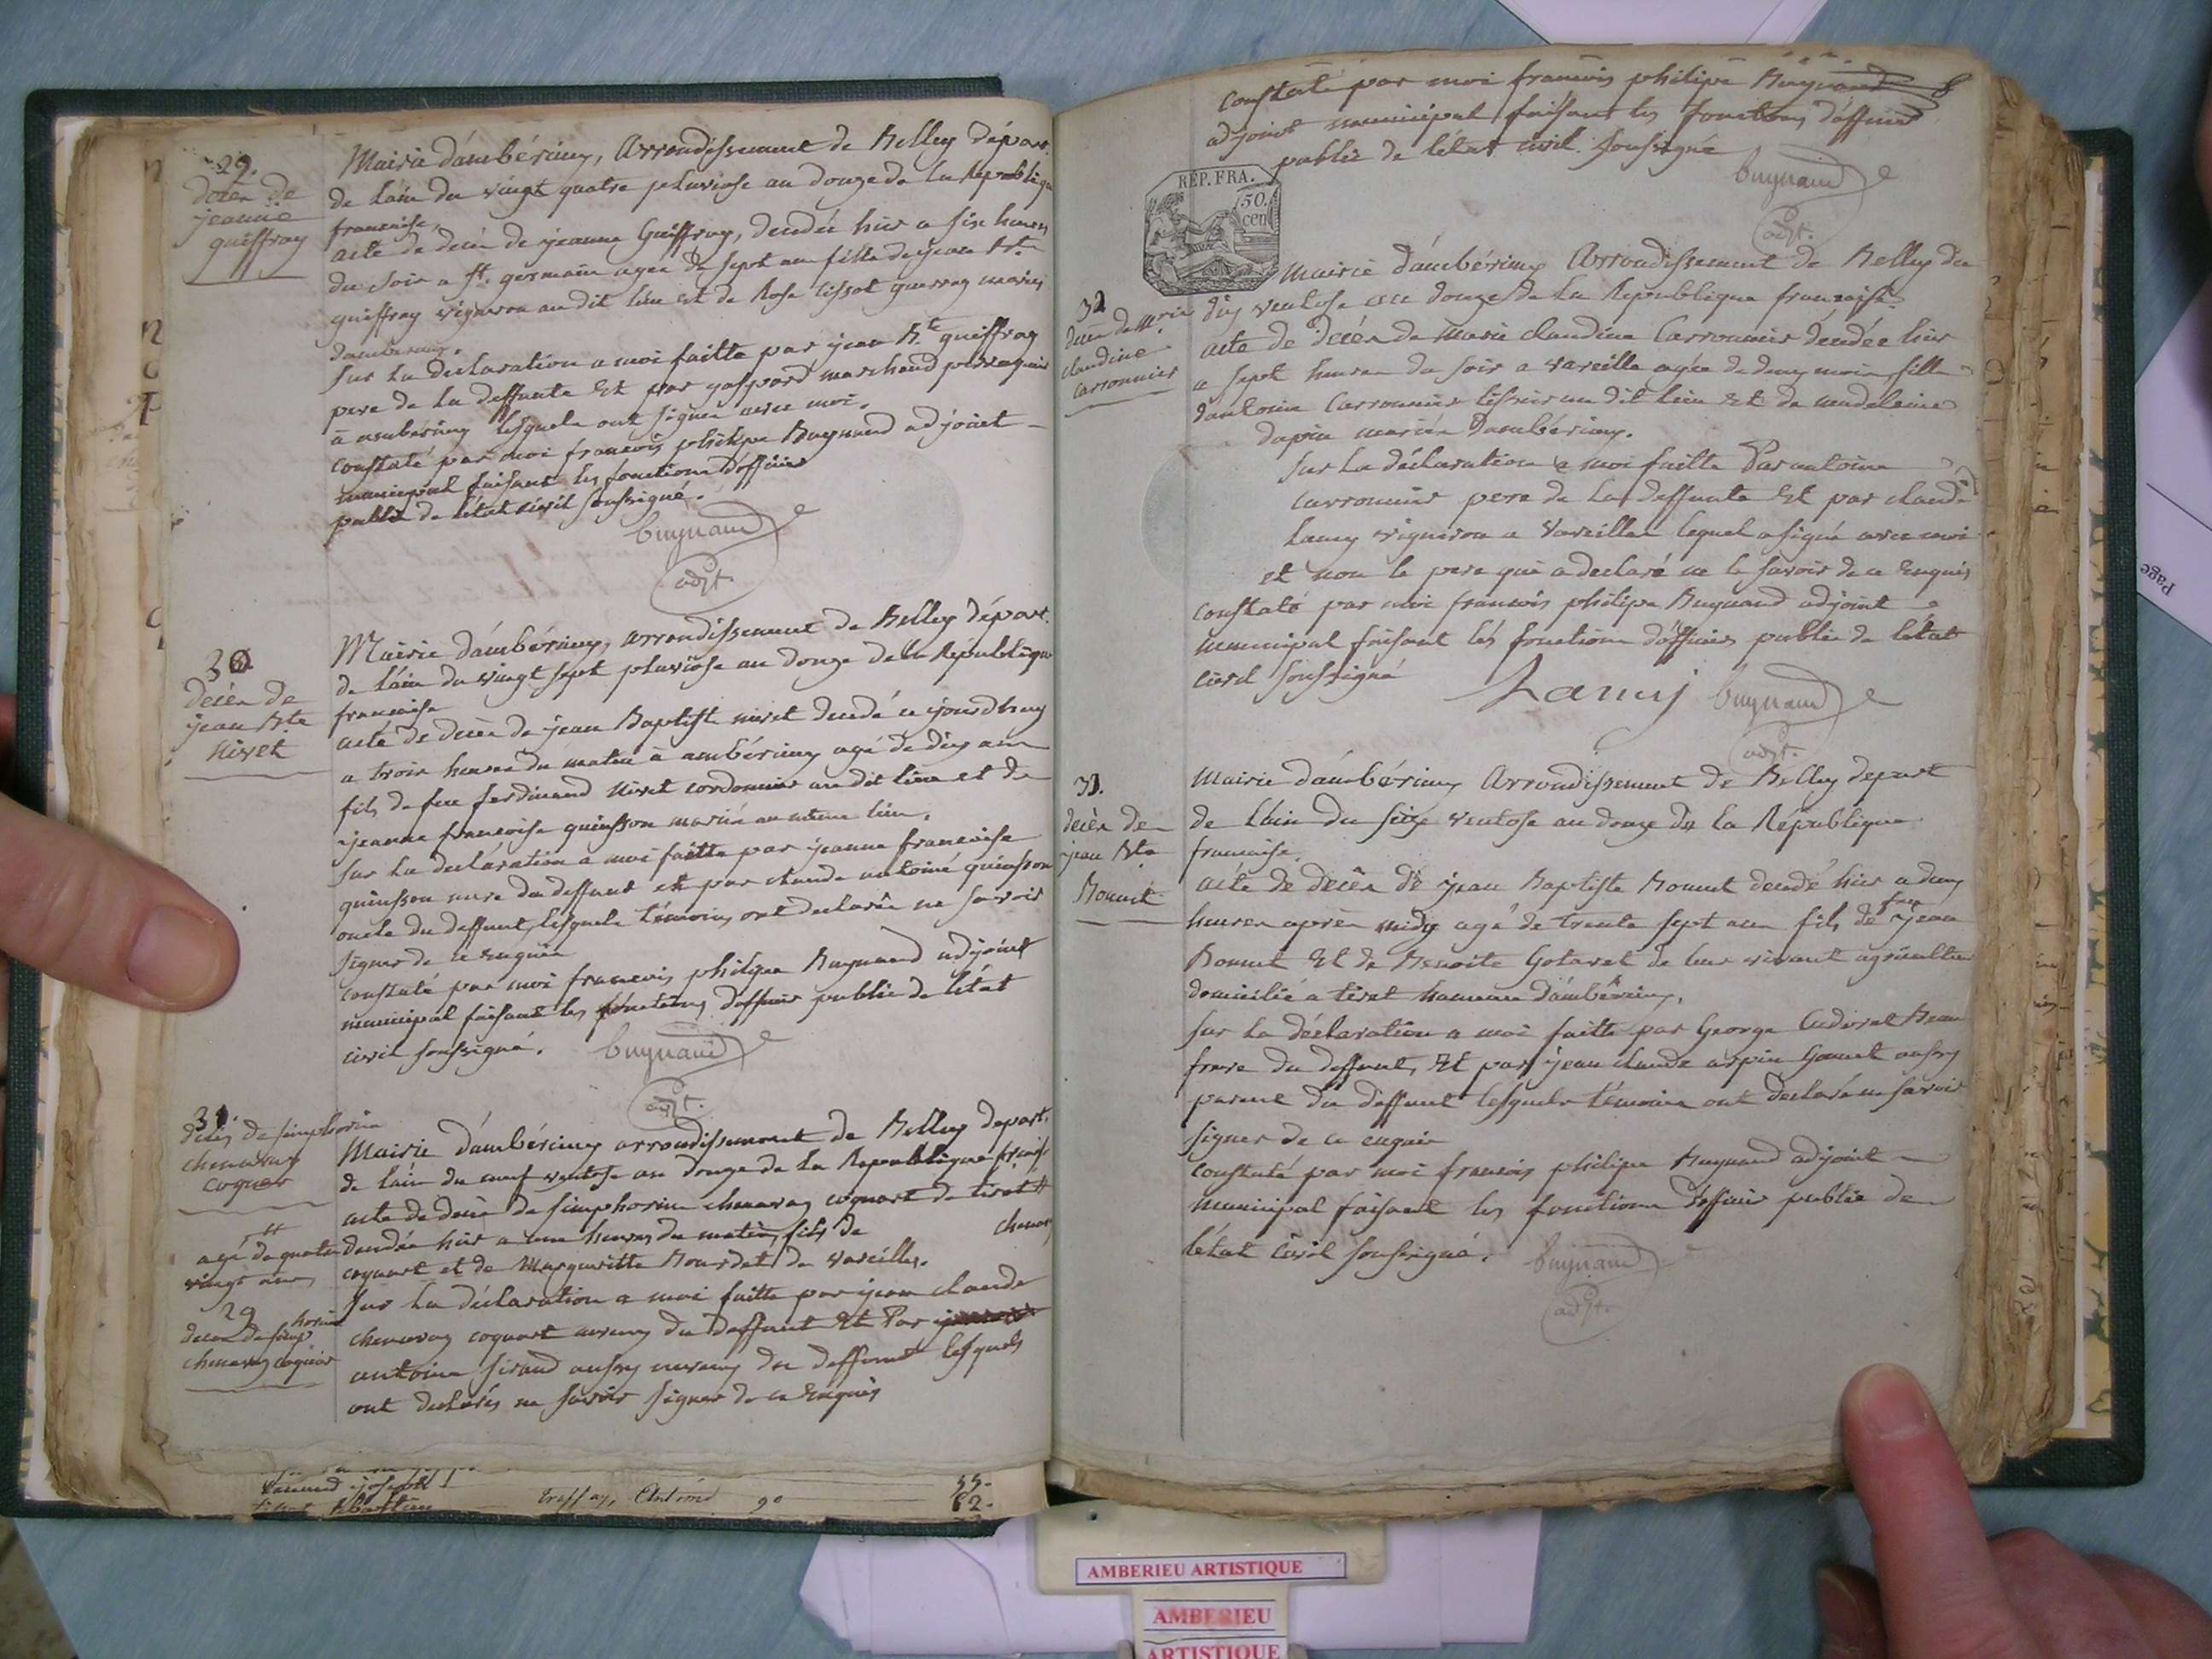 29.
décès de
jeanne
guiffray
Mairie d'ambérieuy, Arrondissement de Belley départ.
de l'ain du vingt quatre pluviose an douze de la République
francaise
acte de décès de jeanne Guiffray, décédée hier a six heures
du soir a St. germain agée de sept ans fille de jean Bte
guiffray vigneron au dit lieu et de Rose tissot guerrey mariés
d'amberieuy.
sur la déclaration a moi faitte par jean Bte guiffray
pere de la deffunte Et par gaspard marchand perruquier
à ambérieuy lesquels ont signés avec moi.
constaté par moi francois philipe Buynand adjoint
municipal faisant les fonctions d'officier
public de l'état civil soussigné.
buynand
adjt.
30
décès de
jean Bte
nivet
Mairie d'ambérieuy, arrondissement de Belley départ.
de l'ain du vingt sept pluviose an douze de la République
francaise
acte de décès de jean Baptiste nivet decedé ce jourdhuy
a trois heures du matin à ambérieuy agé de dix ans
fils de feu ferdinand nivet cordonnier au dit lieu et de
jeanne francoise quinsson mariés au même lieu.
sur la declaration a moi faitte par jeanne francoise
quinsson mere du deffunt et par claude antoine quinsson
oncle du deffunt, lesquels témoins ont declarés ne savoir
signer de ce enquis
constaté par moi francois philipe Buynand adjoint
municipal faisant les fonctions d'officier public de l'état
civil soussigné.
buynand
adjt.
31
décès de simphorien
chenavas
coquar
Mairie d'ambérieuy arrondissement de Belley depart.
de l'ain du neuf ventose an douze de la Republique
acte de décès de simphorien chenavas coquart de tiret #
décédée hier a une heures du matin, fils de
coquart et de Marguritte Bourdet de vareilles.
#
agé de quatre
vingt ans
29
deces de simp
horien
chenavas coquar
sur la déclaration a moi faitte par jean claude
chenavas coquart neveu du deffunt Et Par
antoine sirand aussy neveu du deffunt lesquels
ont declarés ne savoir signer de ce Enquis
constaté par moi francois philipe Buynand
adjoint municipal faisant les fonctions d'officier
public de l'état civil soussigné
buynand
adjt.
8
REP. FRA.
50.
cen
32
claudine
carronnier
Mairie d'ambérieuy Arrondissement de Belley du
dix ventose an douze de la Republique francaise
acte de décès de Marie claudine Carronnier décédée hier
a sept heures du soir a vareille agée de deux mois, fille
d'antoine Carronnier tissier au dit lieu Et de madelaine
dupin mariés d'ambérieuy.
sur la déclaration a moi faitte Par antoine
carronnier pere de la deffunte Et par claude
Lamy vigneron a Vareilles lequel a signé avec moi
et non le pere qui a declaré ne le savoir de ce Enquis
constaté par moi francois philipe Buynand adjoint
municipal faisant les fonctions d'officier public de l'état
civil soussigné
Lamy buynand
adjt.
33.
décès de
jean Bte
Bonnet
Mairie d'ambérieuy Arrondissement de Belley depart
de L'ain du seize ventose an douze de la République
francaise.
acte de décès de jean Baptiste Bonnet decedé hier a deux
heures après midy agé de trente sept ans fils de feu jean
Bonnet Et de Benoite Gotaret de leur vivant agriculteur
domicilié a tiret hameau d'ambérieuy.
sur la déclaration a moi faitte par George Cudurat Beau
frere du deffunt, Et par jean claude arpin Gonnet aussy
parent du deffunt lesquels témoins ont déclaré ne savoir
signer de ce enquis
constaté par moi francois philipe Buynand adjoint
municipal faisant les fonctions d'officier public de
l'état civil soussigné.
buynand
adjt.
joseph
Treffay, Antoine 90
82.
AMBERIEU ARTISTIQUE
AMBERIEU
ARTISTIQUE
Page